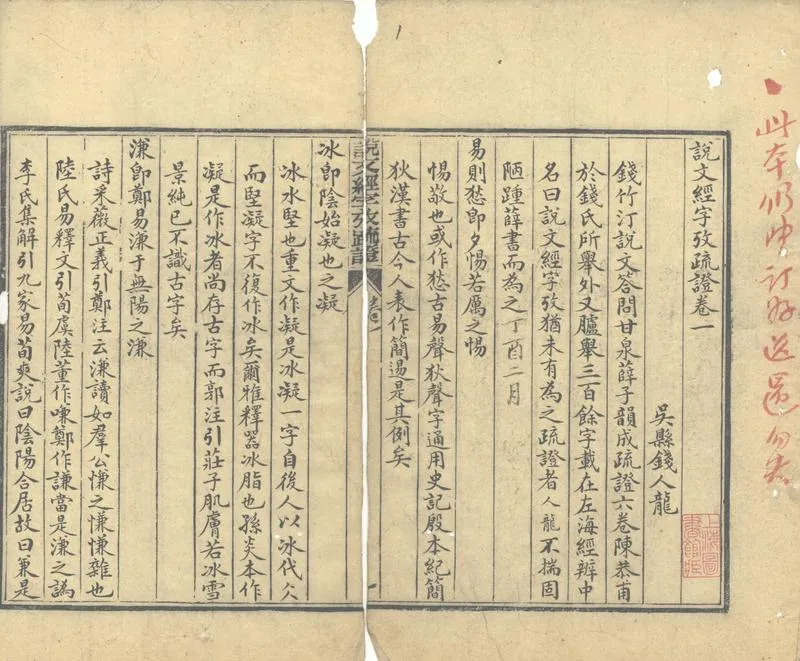 說文經字攷疏證卷一
吳縣錢人龍
錢竹汀說文答問甘泉薛子韻成疏證六卷陳恭甫
於錢氏所舉外又臚舉三百餘字載在左海經辨中
名曰說文經字攷猶未有為之疏證者人龍不揣固
陋踵薛書而為之丁酉二月
易則愁即夕惕若厲之惕
惕敬也或作愁古易聲狄聲字通用史記殷本紀簡
狄漢書古今人表作簡逷是其例矣
說文經字攷疏證
冰即陰始凝也之凝
冰水堅也重文作凝是冰凝一字自後人以冰代仌
而堅凝字不復作冰矣爾雅釋器冰脂也孫炎本作
凝是作冰者尚存古字而郭注引莊子肌膚若冰雪
景純已不識古字矣
溓即鄭易溓于無陽之溓
詩采薇正義引鄭注云溓讀如羣公慊之慊慊雜也
陸氏易釋文引荀虞陸董作嗛鄭作謙當是溓之譌
李氏集解引九家易荀爽說曰陰陽合居故曰兼是
此本仍由訂好送還勿忘
上海圖
書館藏
1